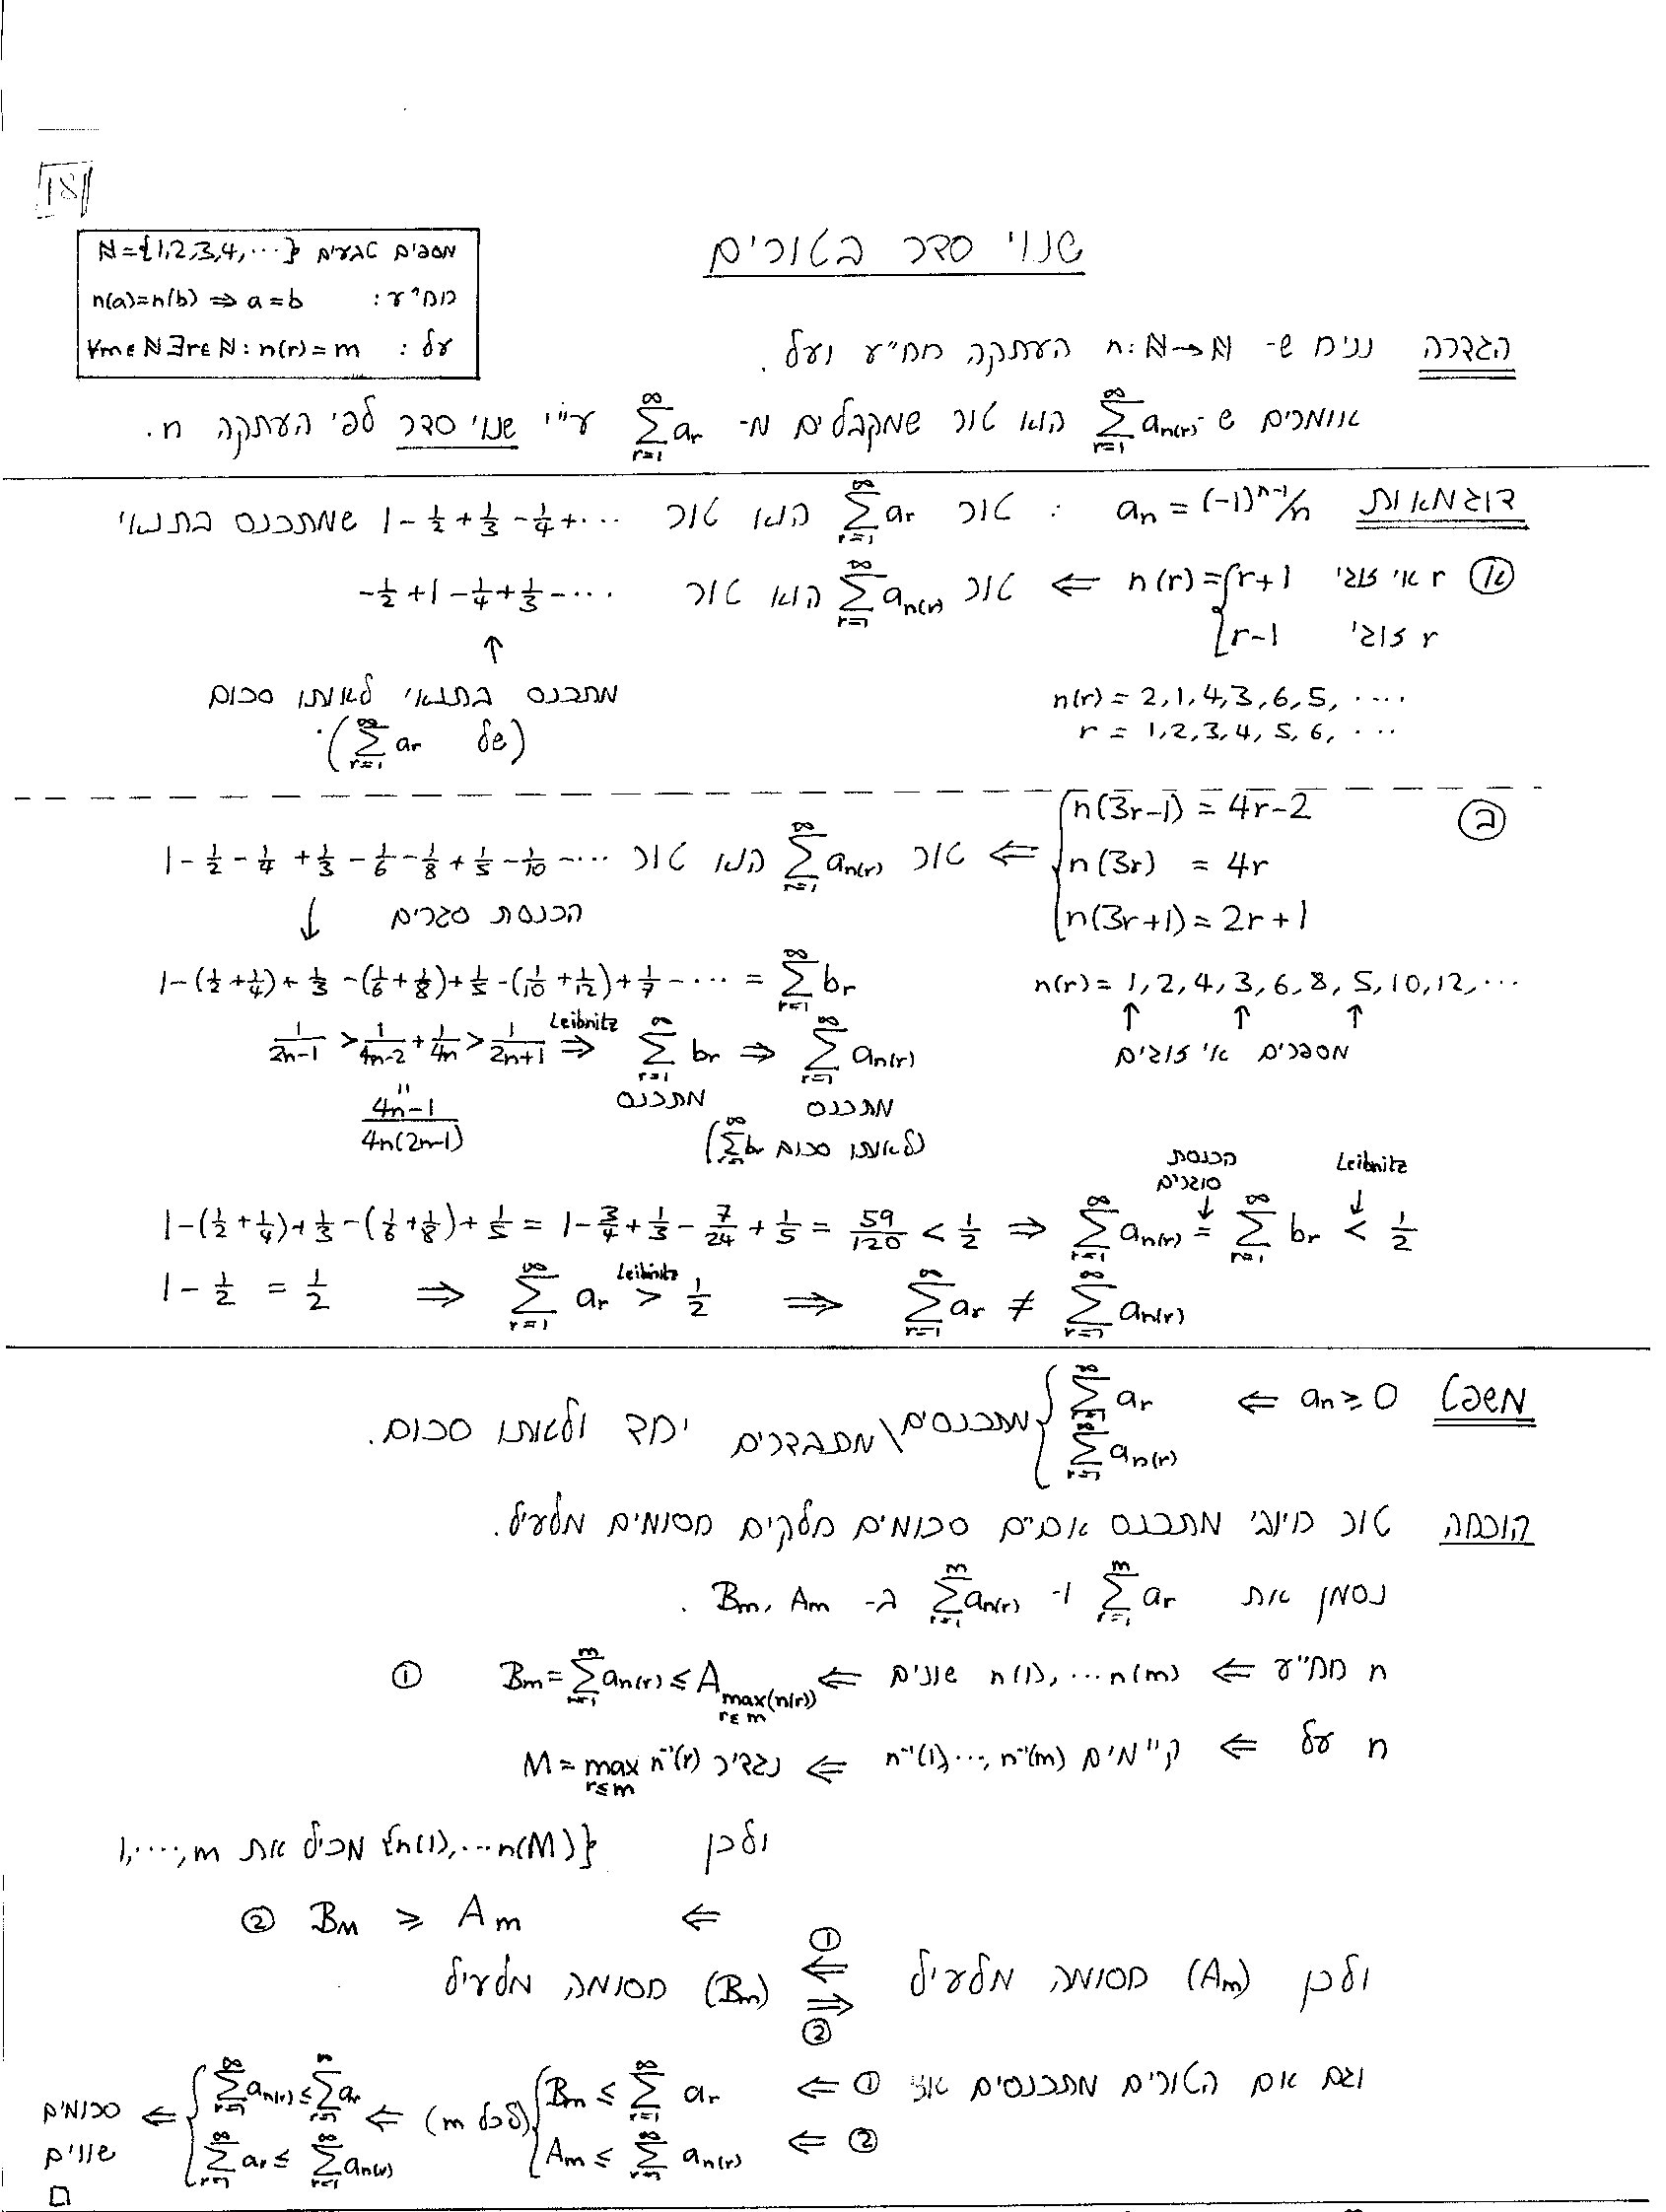 18
שנוי סדר בטורים
מספרים טבעיים N={1,2,3,4,...}
חח"ע: n(a)=n(b) ⇒ a=b
על: ∀m∈N ∃r∈N: n(r)=m
הגדרה נניח ש- n: N→N העתקה חח"ע ועל.
אומרים ש- \sum_{r=1}^{∞} a_{n(r)} הוא טור שמקבלים מ- \sum_{r=1}^{∞} a_r ע"י שנוי סדר לפי העתקה n.
דוגמאות a_n = (-1)^{n-1}/n : טור \sum_{r=1}^{∞} a_r הוא טור 1 - 1/2 + 1/3 - 1/4 + ... שמתכנס בתנאי
(א) n(r) = { r+1 r אי זוגי ; r-1 r זוגי ⇐ טור \sum_{r=1}^{∞} a_{n(r)} הוא טור -1/2 + 1 - 1/4 + 1/3 - ...
↑
מתכנס בתנאי לאותו סכום
(של \sum_{r=1}^{∞} a_r).
n(r) = 2,1,4,3,6,5, ....
r = 1,2,3,4,5,6, ...
(ב) { n(3r-1) = 4r-2 ; n(3r) = 4r ; n(3r+1) = 2r+1 ⇐ טור \sum_{r=1}^{∞} a_{n(r)} הוא טור 1 - 1/2 - 1/4 + 1/3 - 1/6 - 1/8 + 1/5 - 1/10 - ...
↓ הכנסת סגרים
n(r) = 1,2,4,3,6,8,5,10,12,...
↑ ↑ ↑
מספרים אי זוגים
1 - (1/2 + 1/4) + 1/3 - (1/6 + 1/8) + 1/5 - (1/10 + 1/12) + 1/7 - ... = \sum_{r=1}^{∞} b_r
1/(2n-1) > 1/(4n-2) + 1/4n > 1/(2n+1) ⇒ Leibnitz \sum_{r=1}^{∞} b_r ⇒ \sum_{r=1}^{∞} a_{n(r)}
מתכנס מתכנס
" (4n-1)/(4n(2n-1))
(לאותו סכום \sum_{r=1}^{∞} b_r)
הכנסת סוגרים ↓ Leibnitz ↓
1 - (1/2 + 1/4) + 1/3 - (1/6 + 1/8) + 1/5 = 1 - 3/4 + 1/3 - 7/24 + 1/5 = 59/120 < 1/2 ⇒ \sum_{r=1}^{∞} a_{n(r)} = \sum_{r=1}^{∞} b_r < 1/2
1 - 1/2 = 1/2 ⇒ \sum_{r=1}^{∞} a_r > Leibnitz 1/2 ⇒ \sum_{r=1}^{∞} a_r ≠ \sum_{r=1}^{∞} a_{n(r)}
משפט a_n ≥ 0 ⇐ { \sum_{r=1}^{∞} a_r ; \sum_{r=1}^{∞} a_{n(r)} מתכנסים\מתבדרים יחד ולאותו סכום.
הוכחה טור חיובי מתכנס אםם סכומים חלקים חסומים מלעיל.
נסמן את \sum_{r=1}^{m} a_r ו- \sum_{r=1}^{m} a_{n(r)} ב- B_m, A_m.
n חח"ע ⇐ n(1),...n(m) שונים ⇐ B_m = \sum_{r=1}^{m} a_{n(r)} ≤ A_{max_{r≤m}(n(r))} ①
n על ⇐ קיימים n^{-1}(1),...,n^{-1}(m) ⇐ נגדיר M = max_{r≤m} n^{-1}(r)
ולכן {n(1),...n(M)} מכיל את 1,...,m
⇐ B_M ≥ A_m ②
ולכן (A_m) חסומה מלעיל ①⇐ ⇒② (B_m) חסומה מלעיל
וגם אם הטורים מתכנסים אז ① ⇐ { B_m ≤ \sum_{r=1}^{∞} a_r
② ⇐ A_m ≤ \sum_{r=1}^{∞} a_{n(r)} (לכל m) ⇐ { \sum_{r=1}^{∞} a_{n(r)} ≤ \sum_{r=1}^{∞} a_r ; \sum_{r=1}^{∞} a_r ≤ \sum_{r=1}^{∞} a_{n(r)} ⇐ סכומים
שווים
□